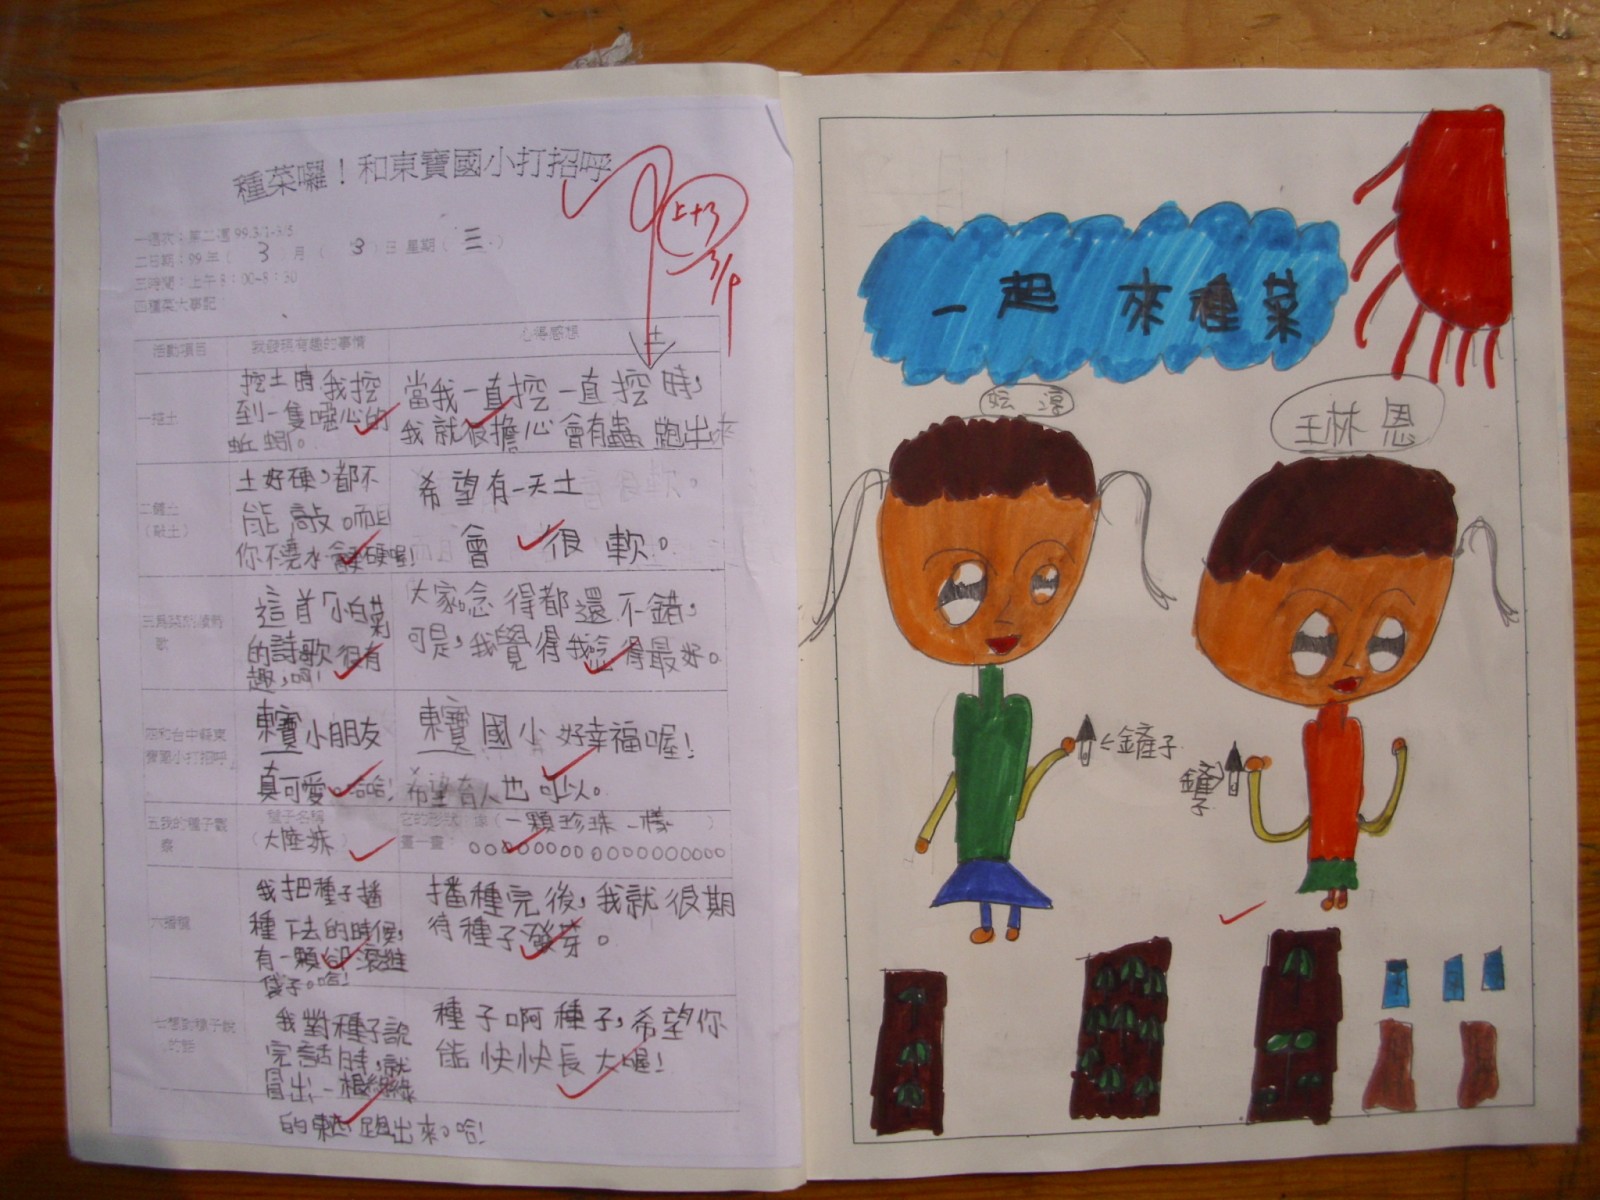 種菜囉！和東寶國小打招呼
上+3
3/9
一週次：第二週 99.3/1-3/5
二日期：99年（3）月（3）日 星期（三）
三時間：上午8：00-8：30
四種菜大事記：
活動項目
我發現有趣的事情
心得感想
土
一挖土
挖土時我挖
到一隻噁心的
蚯蚓。
當我一直挖一直挖時，
我就很擔心會有蟲跑出來
（敲土）
土好硬，都不
能敲。而且
你不澆水會更硬喔！
希望有一天土
會很軟。
歌
這首「小白菜
的詩歌很有
趣，呵！
大家。念得都還不錯，
可是，我覺得我念得最好。
四和台中縣東
寶國小打招呼
東寶小朋友
真可愛。哈哈！
東寶國小好幸福喔！
希望有人也可以。
五我的種子觀
察
種子名稱
（大陸妹）
它的形狀：像（一顆珍珠一樣）
畫一畫：
六播種
我把種子播
種下去的時候，
有一顆卻滾進
袋子。哈！
播種完後，我就很期
待種子發芽。
七想對種子說
的話
我對種子說
完話時，就
冒出一根綠綠
的東西跑出來。哈！
種子啊種子，希望你
能快快長大喔！
一起來種菜
妘淳
王林恩
鏟子
鏟子